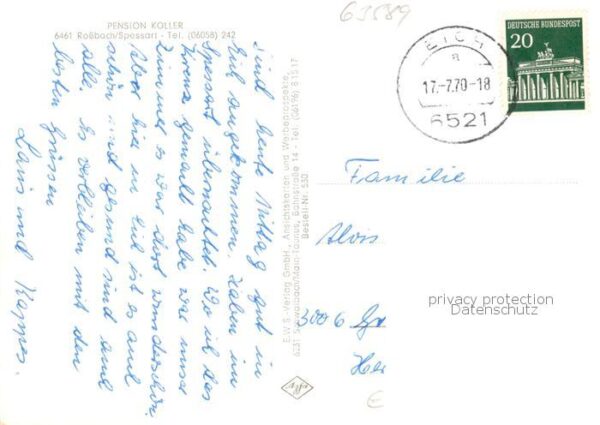 PENSION KOLLER
6461 Roßbach/Spessart - Tel. (06058) 242
63589
DEUTSCHE BUNDESPOST
20
EICH
a
17.-7.70-18
6521
Sind heute Mittag gut in
Eich angekommen. Haben im
Spessart übernachtet. Wo ich das
Kreuz gemacht habe war unser
Zimmer es war dort wunderschön.
Aber hier in Eich ist es auch
schön und gesund sind auch
alle. Es verbleiben mit den
besten Grüssen
und
E.W.S.-Verlag GmbH., Ansichtskarten und Werbeprospekte,
6231 Schwalbach/Main-Taunus, Bahnstraße 14 - Tel. (06196) 31517
Bestell-Nr. 530
Familie
Alois
privacy protection
Datenschutz
€